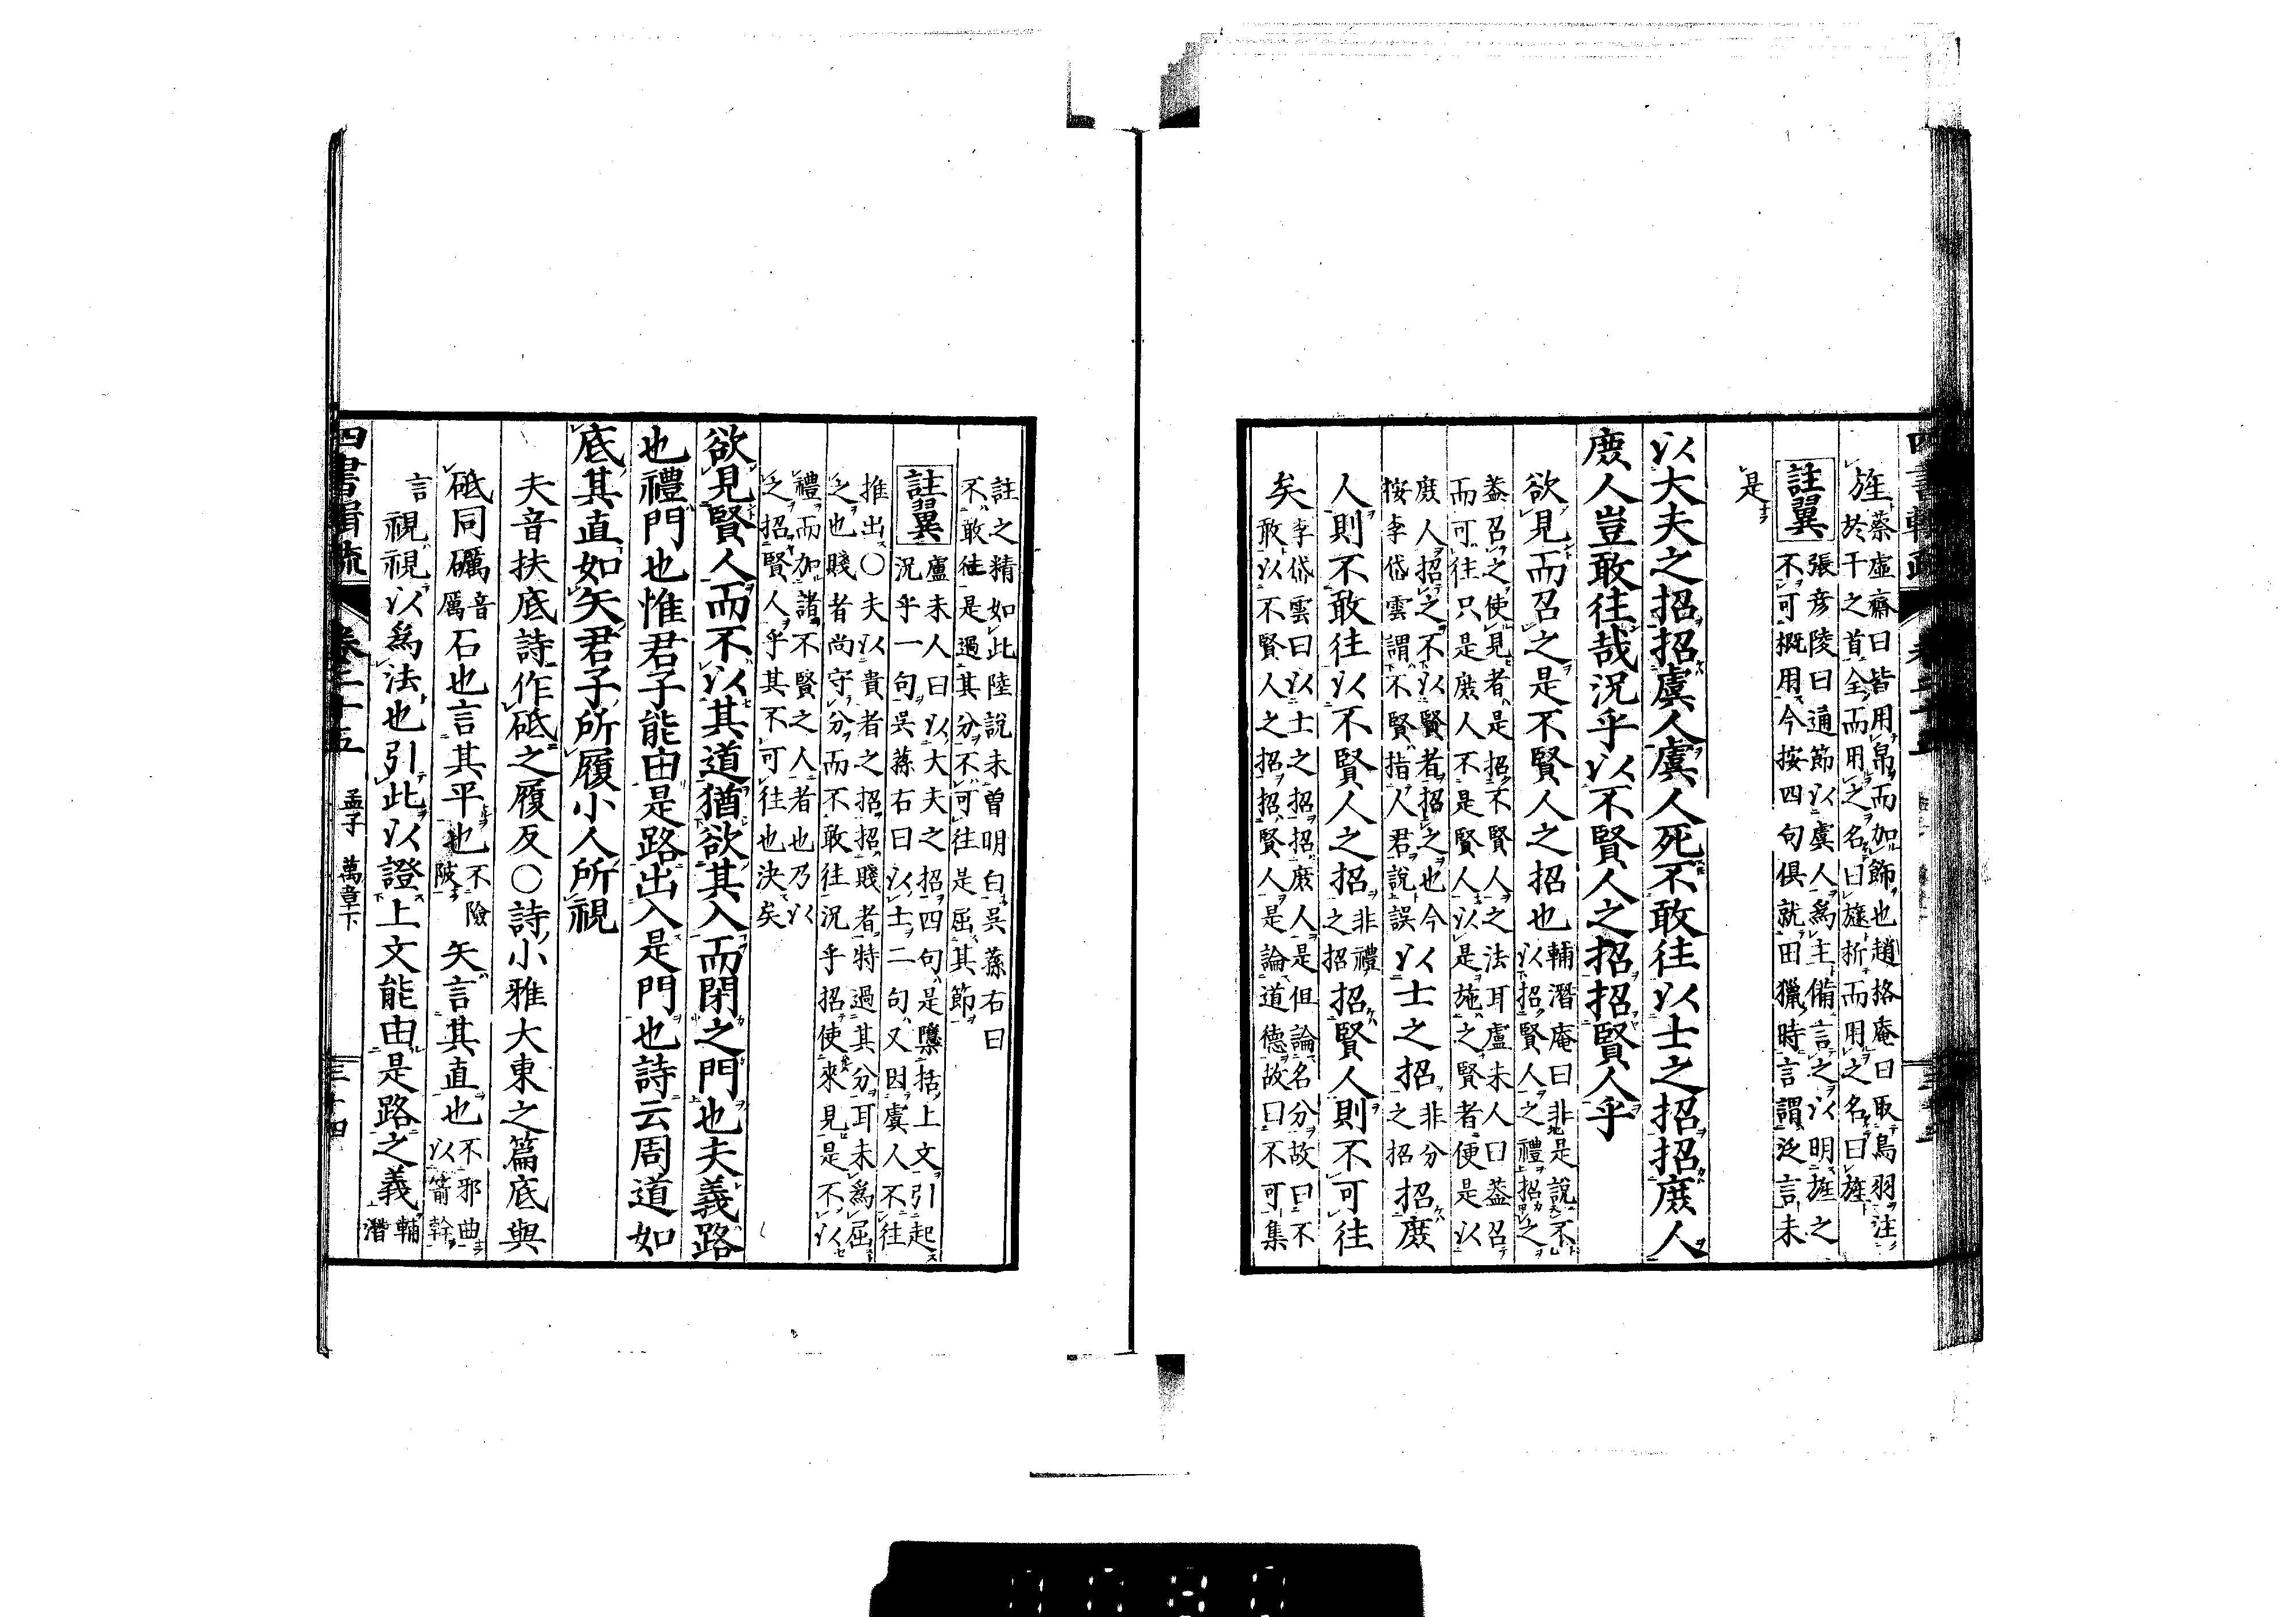 旌蔡虛齋曰皆用帛而加飾也趙格庵曰取鳥羽注
於干之首全而用之名曰旞析而用之名曰旌
註翼張彥陵曰通節以虞人爲主備言之以明旌之
不可概用今按四句俱就田獵時言謂泛言未
是
以大夫之招招虞人虞人死不敢往以士之招招庶人
庶人豈敢往哉況乎以不賢人之招招賢人乎
欲見而召之是不賢人之招也輔潛庵曰非是說不
以招賢人之禮招之
蓋召之使見者是招不賢人之法耳盧未人曰蓋召
而可往只是庶人不是賢人以是施之賢者便是以
庶人招之不以賢者招之也今
按李岱雲謂不賢指人君說誤以士之招非分
之招招庶
人則不敢往以不賢人之招非禮
之招招賢人則不可往
矣李岱雲曰以士之招招庶人是但論名分故曰不
敢以不賢人之招招賢人是論道德故曰不可集
註之精如此陸說未曾明白吳蓀右曰
不敢往是過其分不可往是屈其節
註翼盧未人曰以大夫之招四句是櫽括上文引起
況乎一句吳蓀右曰以士二句又因虞人不往
推出○夫以貴者之招招賤者特過其分耳未爲屈
之也賤者尚守分而不敢往況乎招使來見是不以
禮而加諸不賢之人者也乃以
之招賢人乎其不可往也決矣
欲見賢人而不以其道猶欲其入而閉之門也夫義路
也禮門也惟君子能由是路出入是門也詩云周道如
底其直如矢君子所履小人所視
夫音扶底詩作砥之履反○詩小雅大東之篇底與
砥同礪音
厲石也言其平也不險
陂矢言其直也不邪曲
以箭幹
言視視以爲法也引此以證上文能由是路之義輔
潛
四書輯疏
卷二十五
孟子 萬章下
三十四